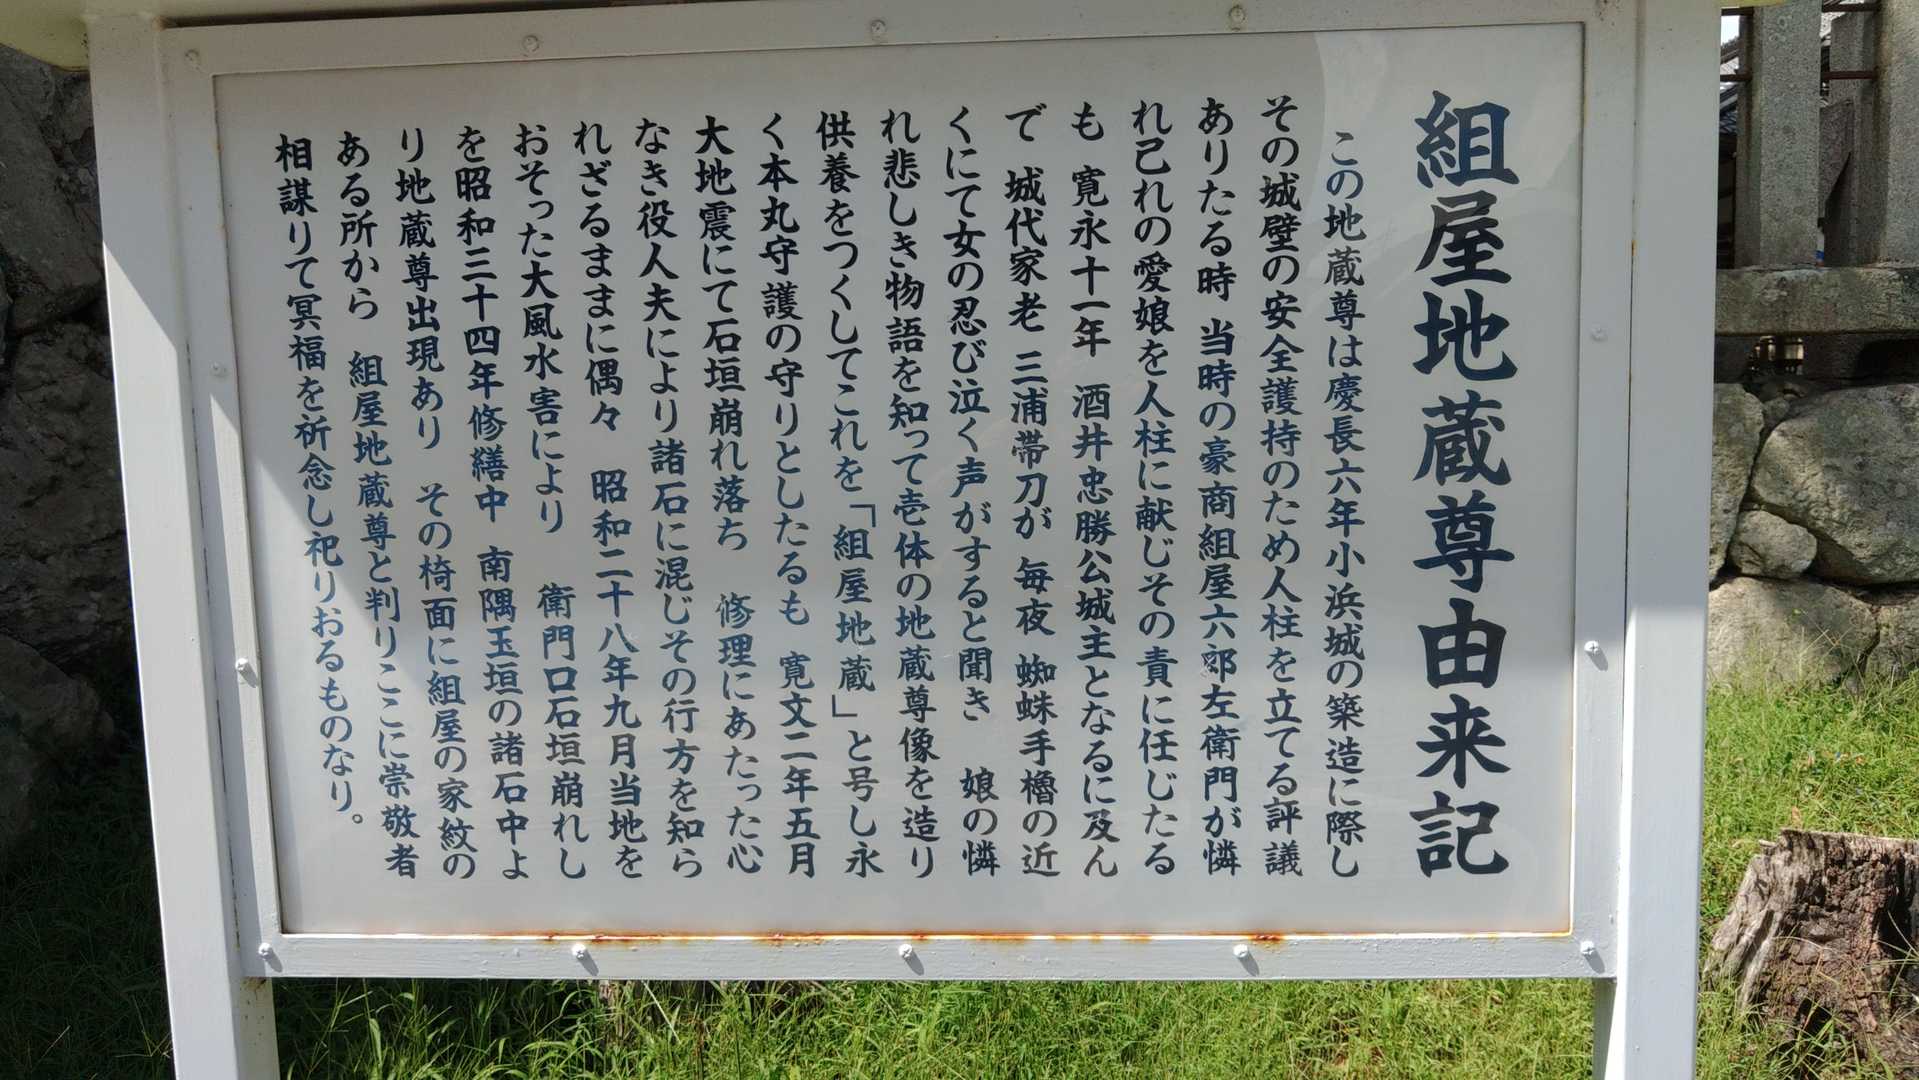 組屋地蔵尊由来記
この地蔵尊は慶長六年小浜城の築造に際し
その城壁の安全護持のため人柱を立てる評議
ありたる時 当時の豪商組屋六郎左衛門が憐
れ己れの愛娘を人柱に献じその責に任じたる
も 寛永十一年 酒井忠勝公城主となるに及ん
で 城代家老 三浦帯刀が 毎夜 蜘蛛手櫓の近
くにて女の忍び泣く声がすると聞き 娘の憐
れ悲しき物語を知って壱体の地蔵尊像を造り
供養をつくしてこれを「組屋地蔵」と号し永
く本丸守護の守りとしたるも 寛文二年五月
大地震にて石垣崩れ落ち 修理にあたった心
なき役人夫により諸石に混じその行方を知ら
れざるままに偶々 昭和二十八年九月当地を
おそった大風水害により 衛門口石垣崩れし
を昭和三十四年修繕中 南隅玉垣の諸石中よ
り地蔵尊出現あり その椅面に組屋の家紋の
ある所から 組屋地蔵尊と判りここに崇敬者
相謀りて冥福を祈念し祀りおるものなり。